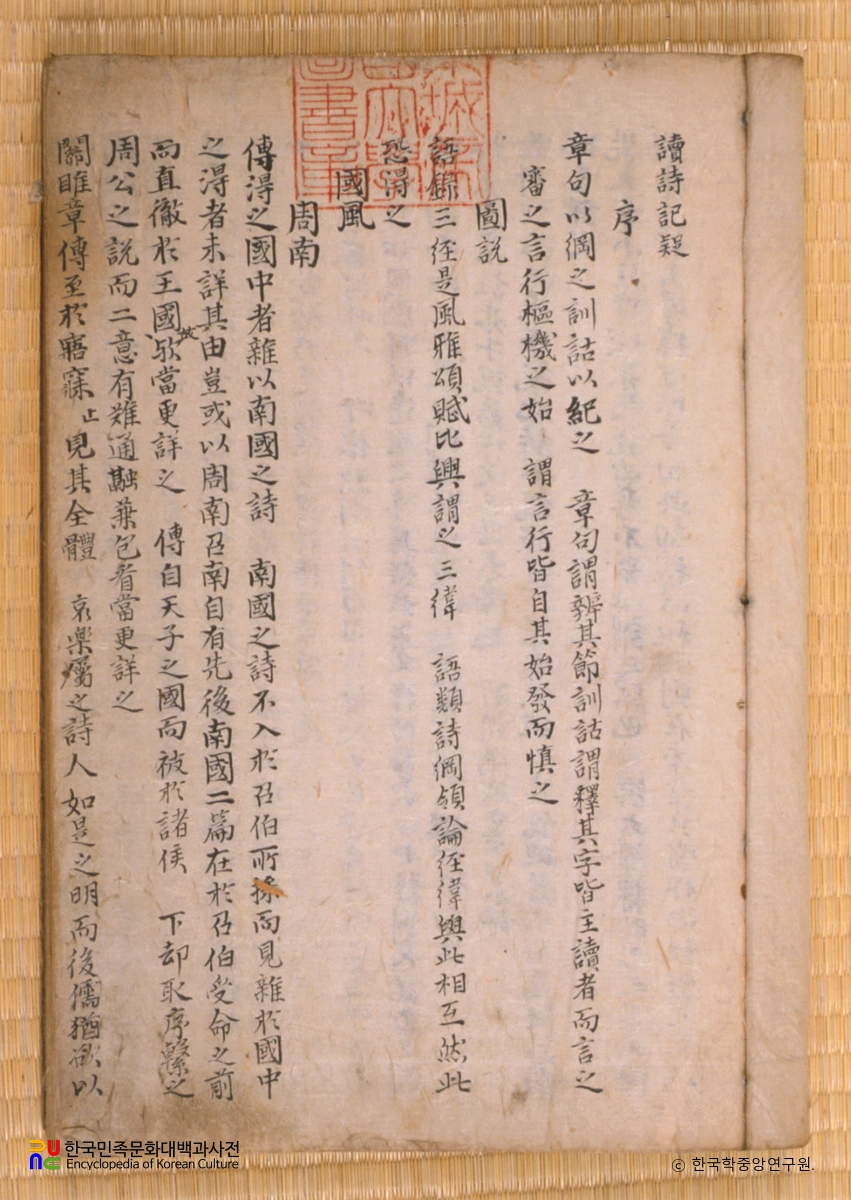 讀詩記疑
序
章句以綱之訓詁以紀之 章句謂辨其節訓詁謂釋其字皆主讀者而言之
審之言行樞機之始 謂言行皆自其始發而愼之
圖說
語錄三経是風雅頌賦比興謂之三緯 語類詩綱領論経緯與此相互然此
恐得之
國風
周南
傳淂之國中者雜以南國之詩 南國之詩不入於召伯所採而見雜於國中
之淂者未詳其由豈或以周南召南自有先後南國二篇在於召伯受命之前
而直徹於王國故歟當更詳之 傳自天子之國而被於諸侯 下却取序繫之
周公之說而二意有難通融兼包者當更詳之
關雎章傳至於寤寐止見其全體 哀樂屬之詩人如是之明而後儒猶欲以
圖書章
한국민족문화대백과사전
Encyclopedia of Korean Culture
ⓒ 한국학중앙연구원.